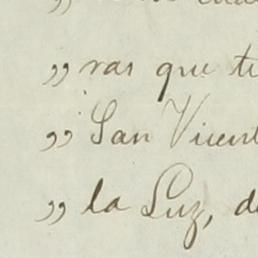 „ ras que ti
„ San Vicent
„ la Luz, d